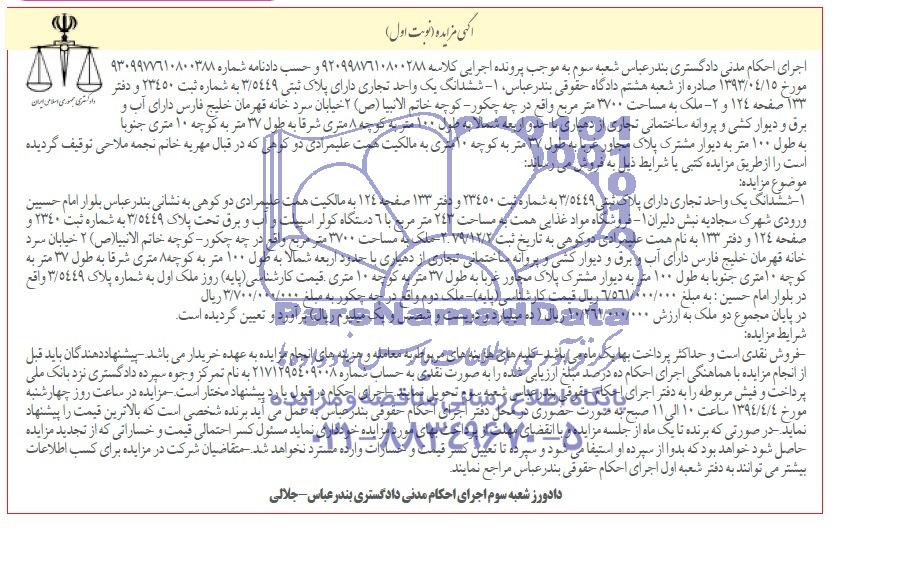 دادگستری جمهوری اسلامی ایران
اگهی مزایده (نوبت اول)
اجرای احکام مدنی دادگستری بندرعباس شعبه سوم به موجب پرونده اجرایی کلاسه ۹۲۰۹۹۸۷۶۱۰۸۰۰۲۸۸ و حسب دادنامه شماره ۹۳۰۹۹۷۷۶۱۰۸۰۰۳۸۸
مورخ ۱۳۹۳/۰۴/۱۵ صادره از شعبه هشتم دادگاه حقوقی بندرعباس، ۱- ششدانگ یک واحد تجاری دارای پلاک ثبتی ۳/۵۴۴۹ به شماره ثبت ۲۳۴۵۰ و دفتر
۱۳۳ صفحه ۱۲۴ و ۲- ملک به مساحت ۳۷۰۰ متر مربع واقع در چه چکور- کوچه خاتم الانبیا (ص) ۲خیابان سرد خانه قهرمان خلیج فارس دارای آب و
برق و دیوار کشی و پروانه ساختمانی تجاری از دهیاری با حدود اربعه شمالا به طول ۱۰۰ متر به کوچه ۸ متری شرقا به طول ۳۷ متر به کوچه ۱۰ متری جنوبا
به طول ۱۰۰ متر به دیوار مشترک پلاک مجاور غربا به طول ۳۷ متر به کوچه ۱۰ متری به مالکیت همت علیمرادی دو کوهی که در قبال مهریه خانم نجمه ملاحی توقیف گردیده
است را ازطریق مزایده کتبی با شرایط ذیل به فروش می رساند:
موضوع مزایده:
۱-ششدانگ یک واحد تجاری دارای پلاک ثبتی۳/۵۴۴۹ به شماره ثبت ۲۳۴۵۰ و دفتر ۱۳۳ صفحه ۱۲۴ به مالکیت همت علیمرادی دو کوهی به نشانی بندرعباس بلوار امام حسین
ورودی شهرک سجادیه نبش دلیران۱-فروشگاه مواد غذایی همت به مساحت ۲۴۳ متر مربع با ۶ دستگاه کولر اسپلیت و آب و برق تحت پلاک ۳/۵۴۴۹ به شماره ثبت ۲۳۴۰ و
صفحه ۱۲۴ و دفتر ۱۳۳ به نام همت علیمرادی دو کوهی به تاریخ ثبت ۷۹/۱۲/۲. ۲-ملک به مساحت ۳۷۰۰ متر مربع واقع در چه چکور-کوچه خاتم الانبیا(ص) ۲ خیابان سرد
خانه قهرمان خلیج فارس دارای آب و برق و دیوار کشی و پروانه ساختمانی تجاری از دهیاری با حدود اربعه شمالا به طول ۱۰۰ متر به کوچه۸ متری شرقا به طول ۳۷ متر به
کوچه ۱۰متری جنوبا به طول ۱۰۰ متر به دیوار مشترک پلاک مجاور غربا به طول ۳۷ متر به کوچه ۱۰ متری .قیمت کارشناسی (پایه) روز ملک اول به شماره پلاک ۳/۵۴۴۹ واقع
در بلوار امام حسین : به مبلغ ۶/۵۶۱/۰۰۰/۰۰۰ ریال قیمت کارشناسی(پایه)-ملک دوم واقع در چه چکور به مبلغ ۳/۷۰۰/۰۰۰/۰۰۰ ریال
در پایان مجموع دو ملک به ارزش ۱۰/۲۶۱/۰۰۰/۰۰۰ ریال( ده میلیارد و دویست و شصت و یک میلیون ریال) برآورد و تعیین گردیده است.
شرایط مزایده:
-فروش نقدی است و حداکثر پرداخت بها یک ماه می باشد.-کلیه های هزینه های مربوط به معامله و هزینه های انجام مزایده به عهده خریدار می باشد.-پیشنهاددهندگان باید قبل
از انجام مزایده با هماهنگی اجرای احکام ده درصد مبلغ ارزیابی شده را به صورت نقدی به حساب شماره ۲۱۷۱۲۹۵۴۰۹۰۰۸ به نام تمرکز وجوه سپرده دادگستری نزد بانک ملی
پرداخت و فیش مربوطه را به دفتر اجرای احکام حقوقی بندرعباس شعبه سوم تحویل نمایند.-اجرای احکام در قبول یا رد پیشنهاد مختار است.-مزایده در ساعت روز چهارشنبه
مورخ ۱۳۹۴/۴/۴ ساعت ۱۰ الی ۱۱ صبح به صورت حضوری در محل دفتر اجرای احکام حقوقی بندرعباس به عمل می آید برنده شخصی است که بالاترین قیمت را پیشنهاد
نماید.-در صورتی که برنده تا یک ماه از جلسه مزایده و با انقضای مهلت از پرداخت بهای مورد مزایده خودداری نماید مسئول کسر احتمالی قیمت و خساراتی که از تجدید مزایده
حاصل شود خواهد بود که بدوا از سپرده او استیفا می شود و سپرده تا تعیین کسر قیمت و خسارات وارده مسترد نخواهد شد.-متقاضیان شرکت در مزایده برای کسب اطلاعات
بیشتر می توانند به دفتر شعبه اول اجرای احکام حقوقی بندرعباس مراجع نمایند.
دادورز شعبه سوم اجرای احکام مدنی دادگستری بندرعباس-جلالی
ParsNamadData
پایگاه اطلاع رسانی مناقصه و مزایده
۰۲۱-۸۸۳۴۹۶۷۰-۵